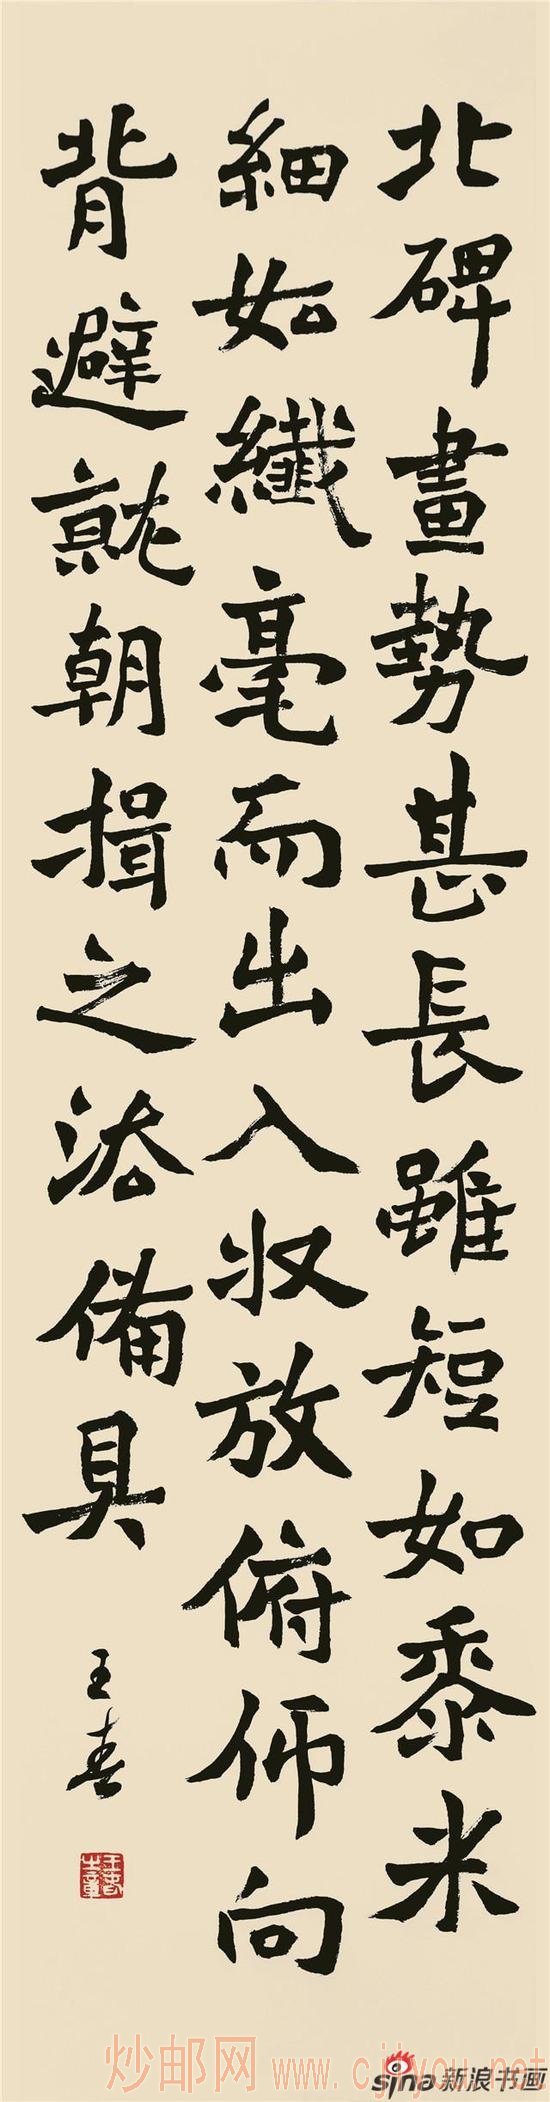 北碑畫勢甚長雖短如黍米
細如纖毫而出入收放俯仰向
背避就朝揖之法備具
王春
炒邮网 www.cjiyou.net
sina 新浪书画